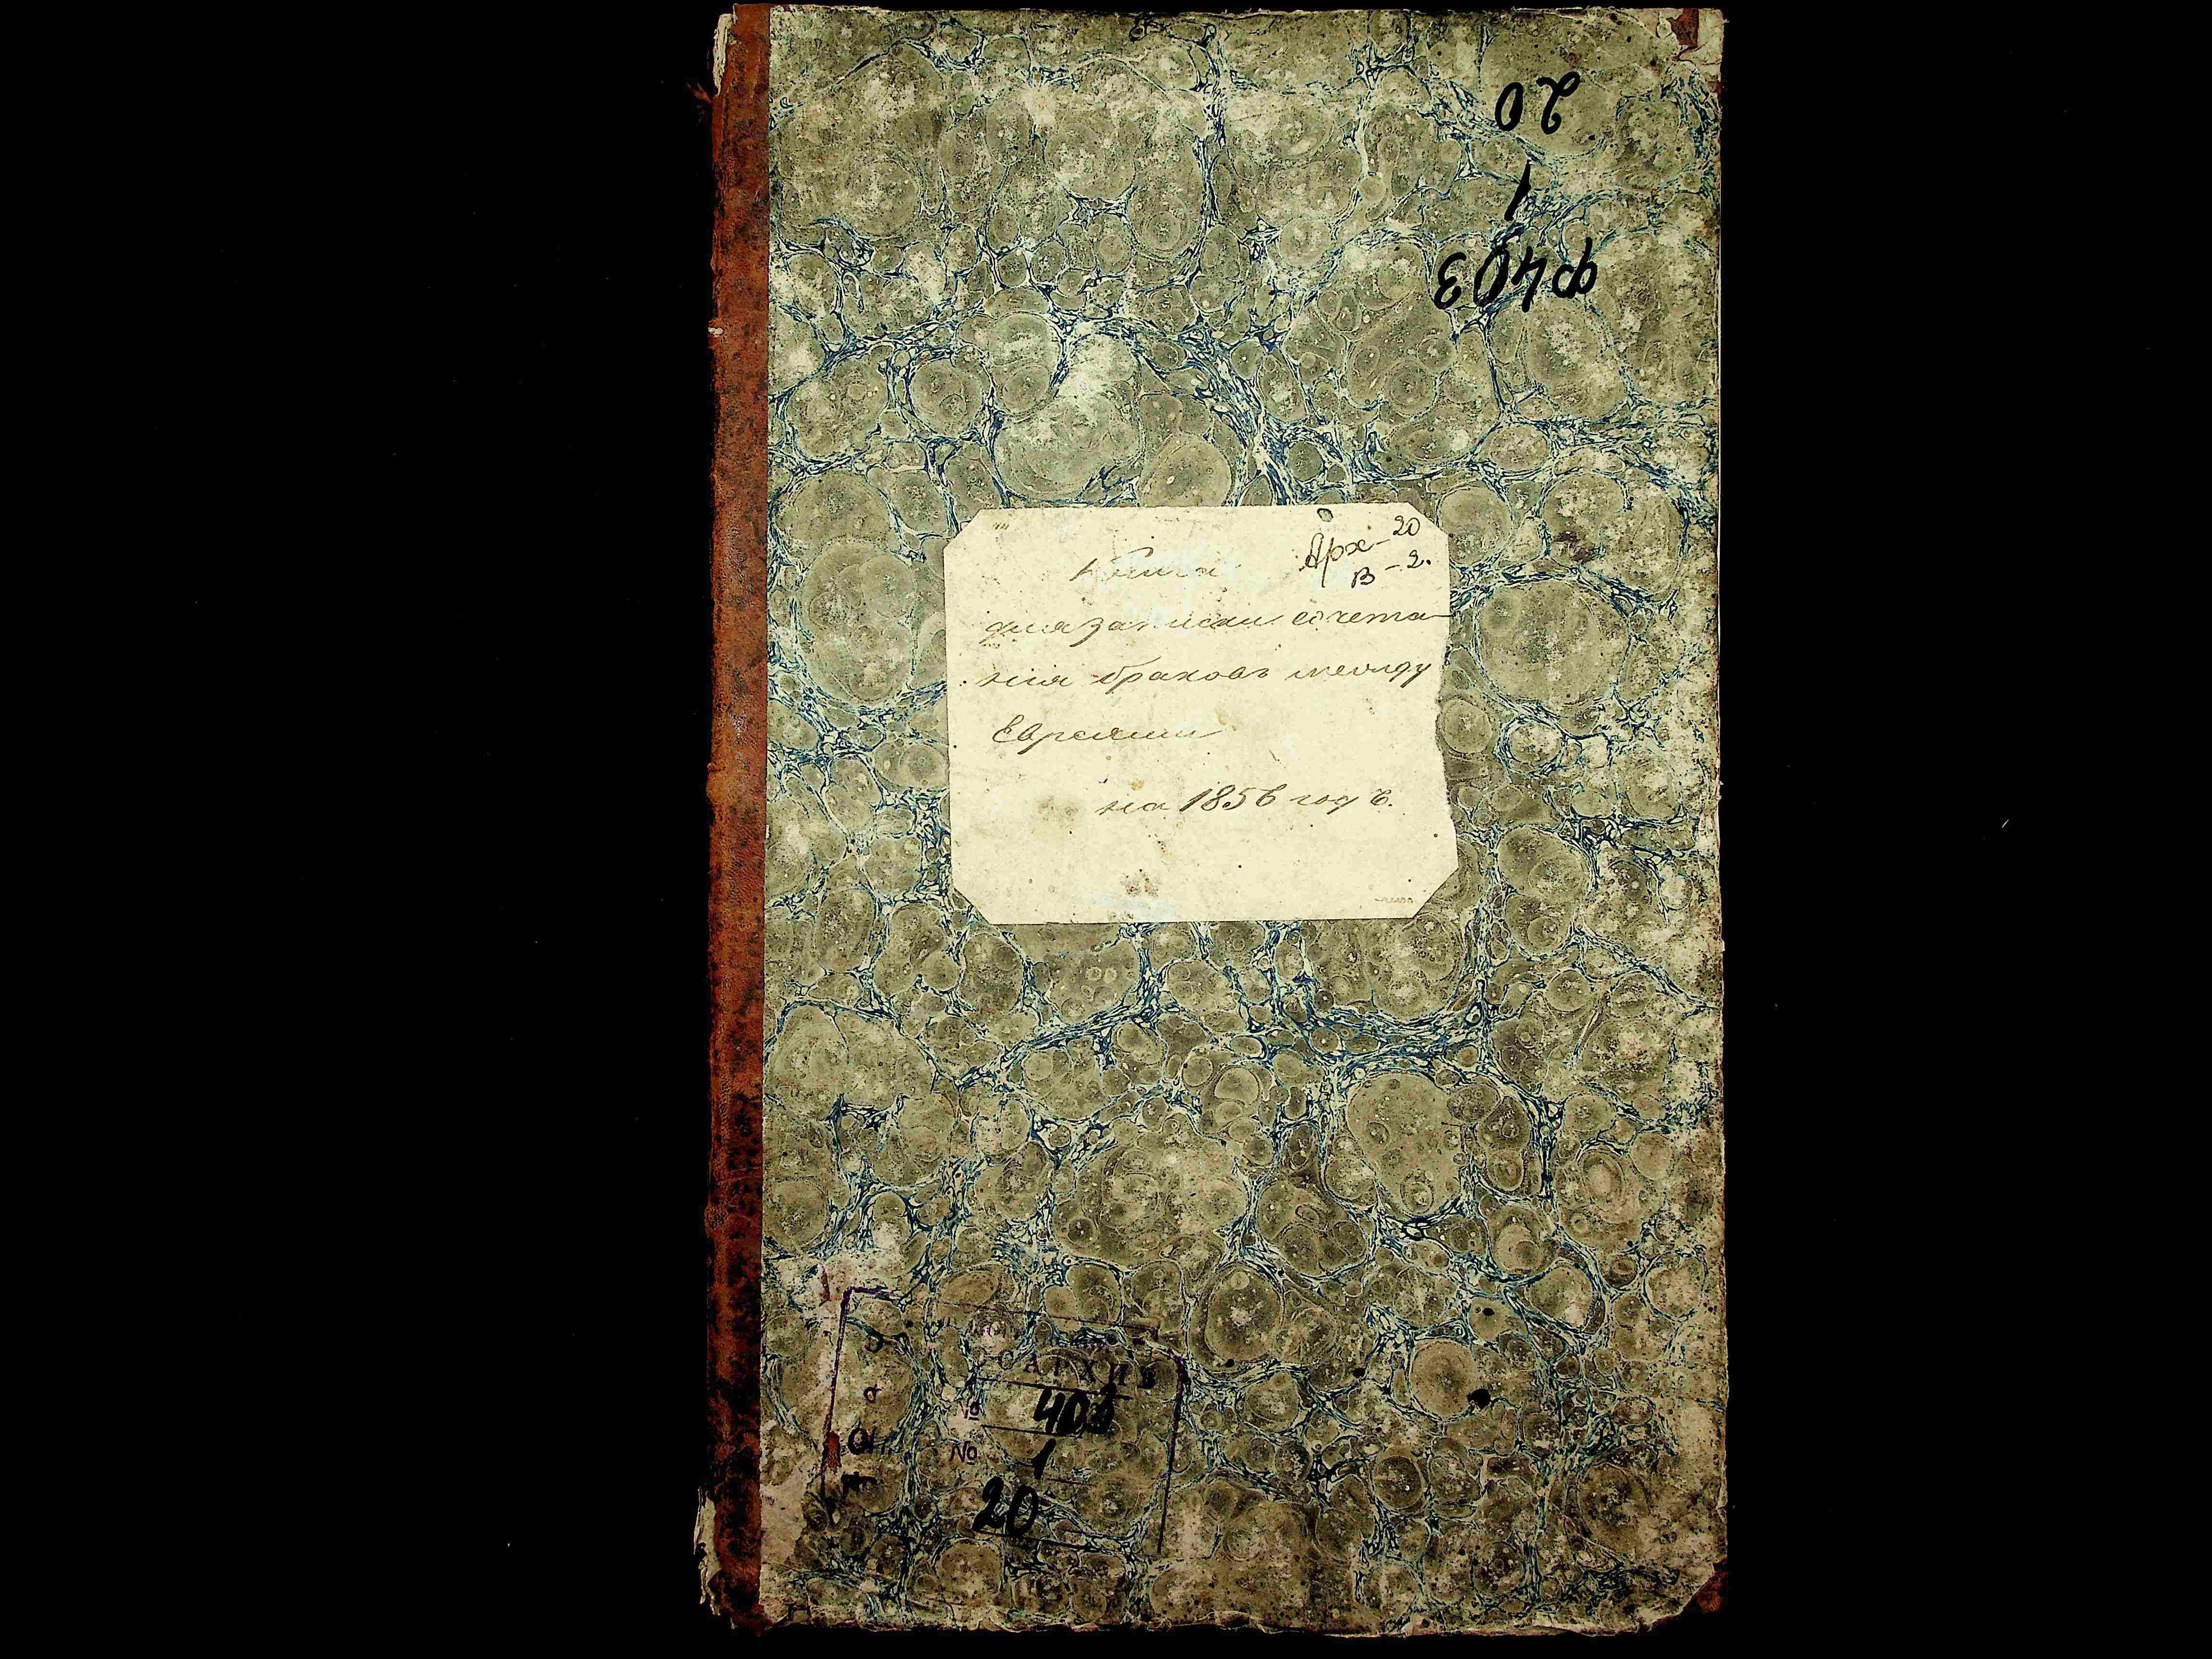 20
1
ф403
Арх-20
В-2.
Книга
для записки сочета-
нія браковъ между
Евреями
на 1856 годъ.
САРХИВ
№ 403
№ 1
20